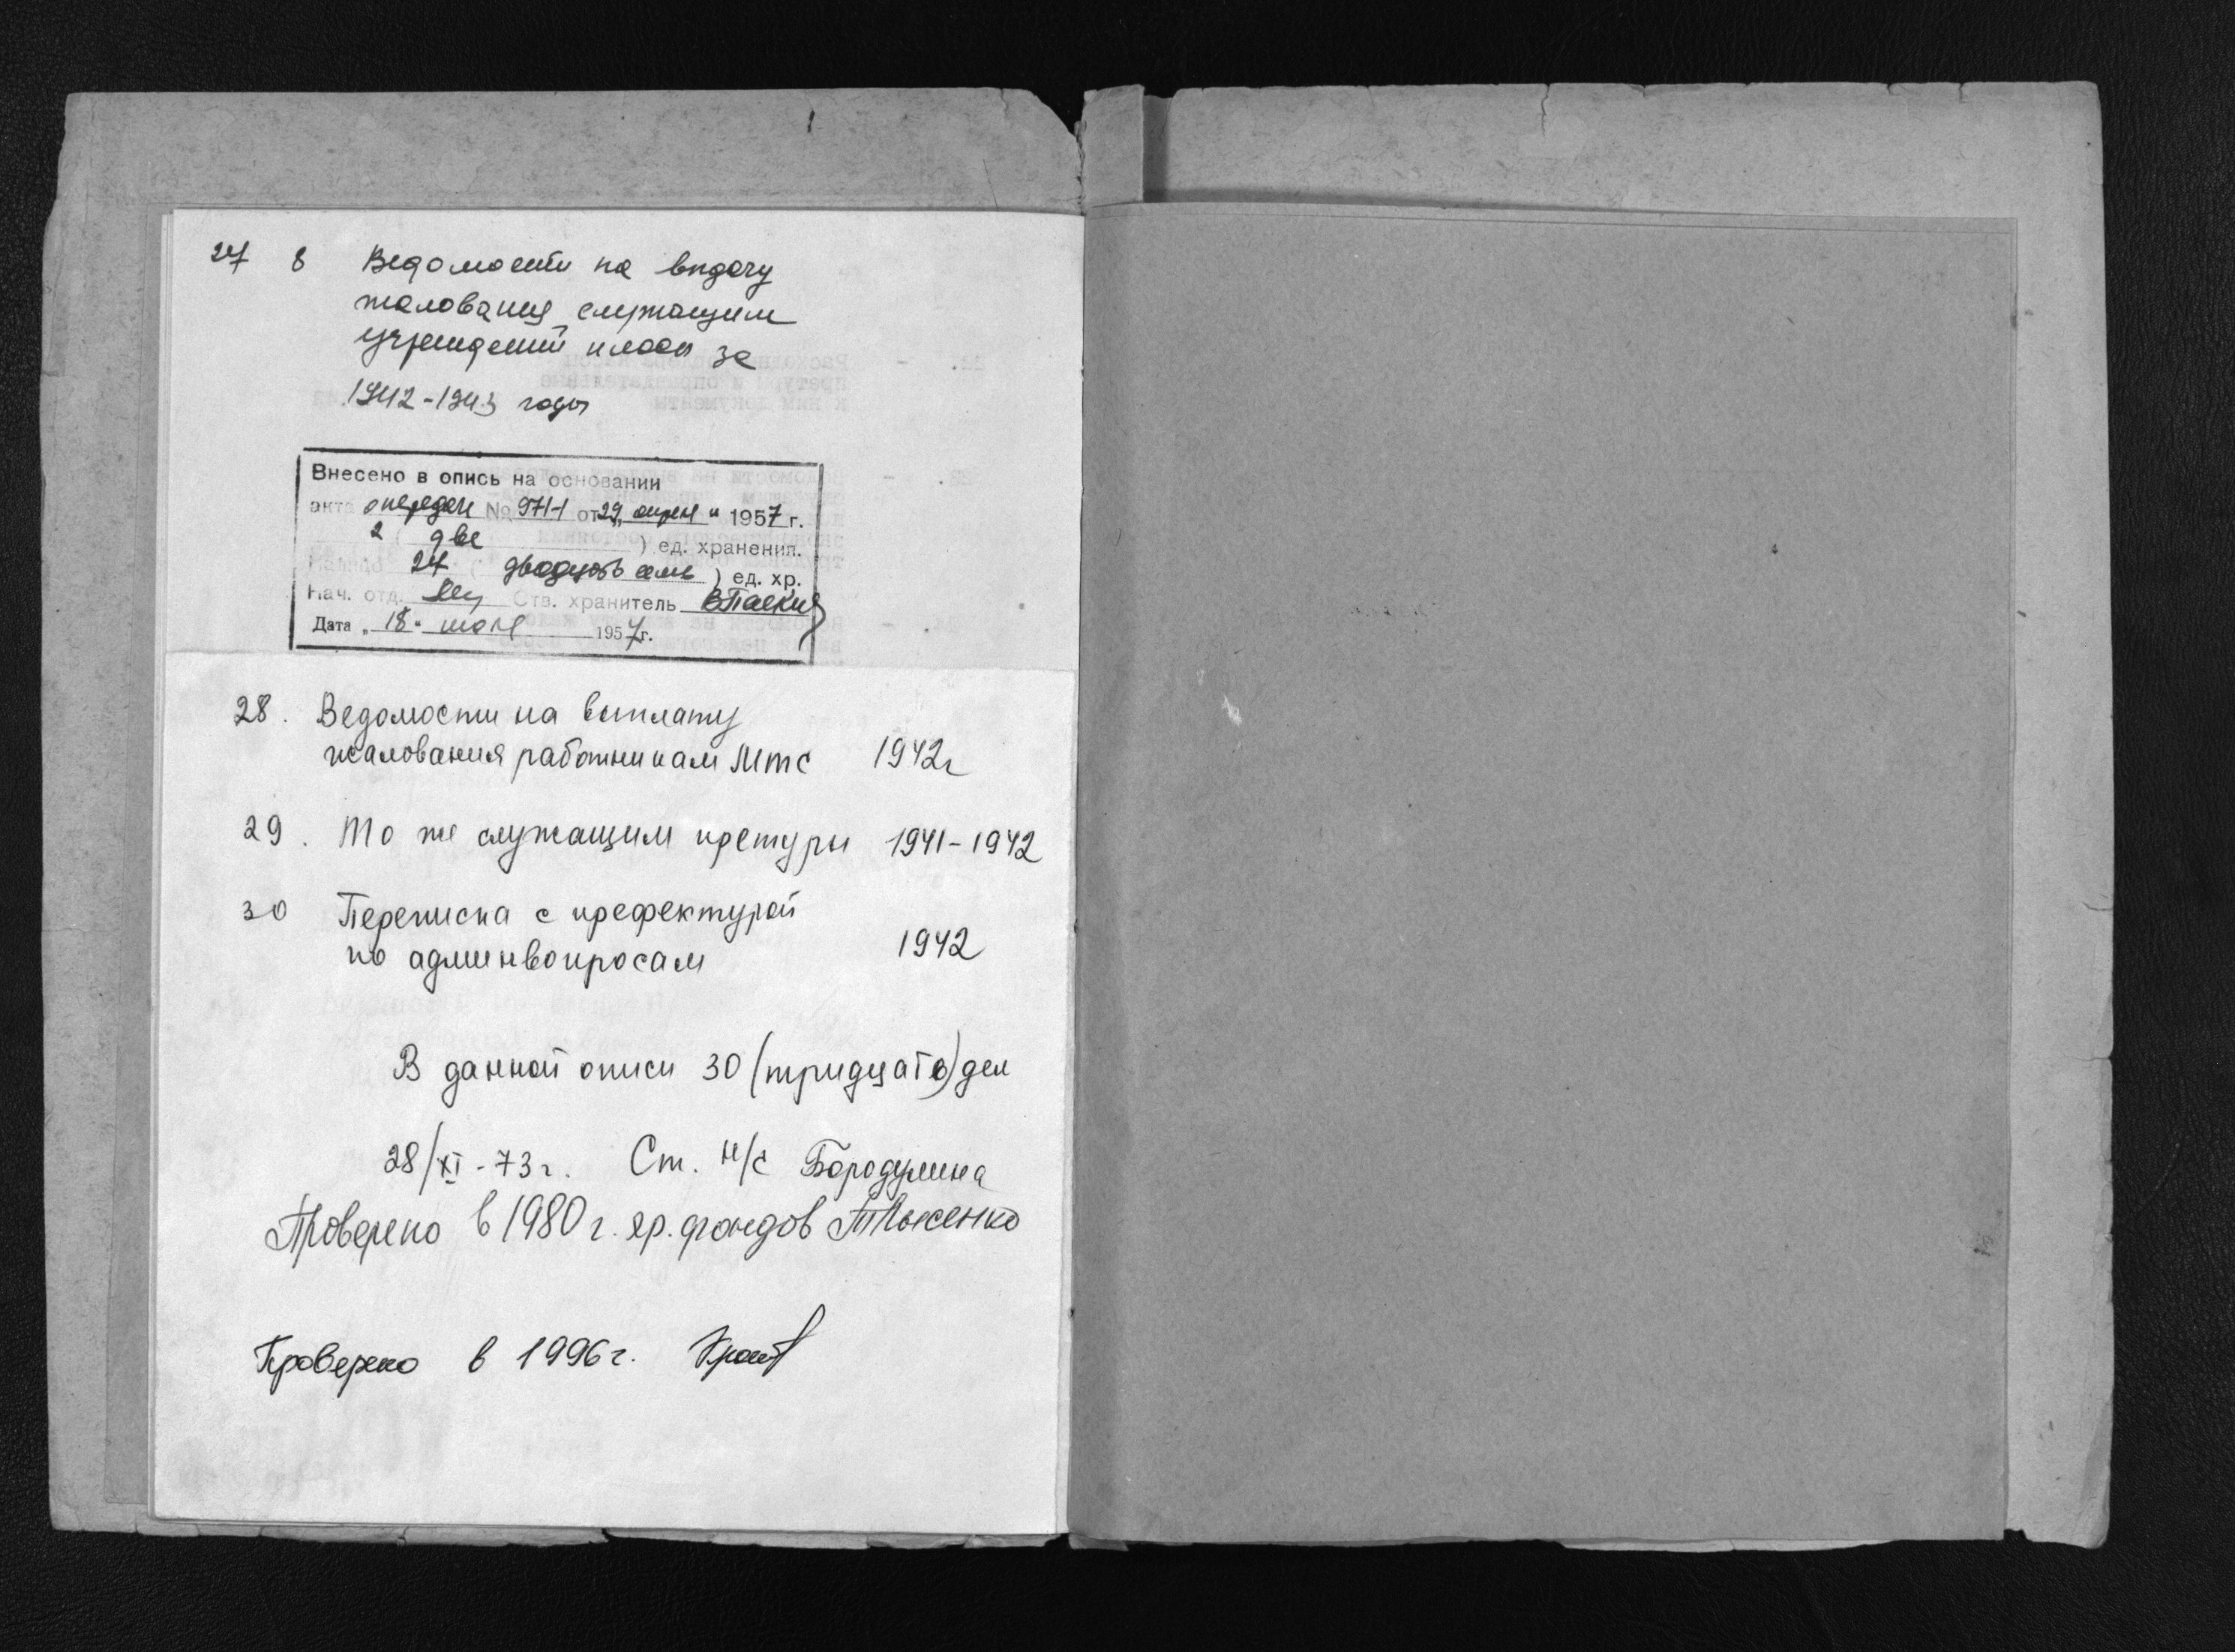 27 8 Ведомости на выдачу
жалования служащим
учреждений и ... за
1942-1943 годы
Внесено в опись на основании
акта о передач № 971-1 от "29" апреля 1957 г.
2 ( две ) ед. хранения.
27 ( двадцать семь ) ед. хр.
Нач. отд. Отв. хранитель
Дата "18" июля 1957 г.
28. Ведомости на выплату
жалования работникам МТС 1942г
29. То же служащим претуры 1941-1942
30 Переписка с префектурой
по админвопросам 1942
В данной описи 30 (тридцать) дел
28/XI-73г. Ст. н/с Бородулина
Проверено в 1980 г. хр. фондов
Проверено в 1996 г.